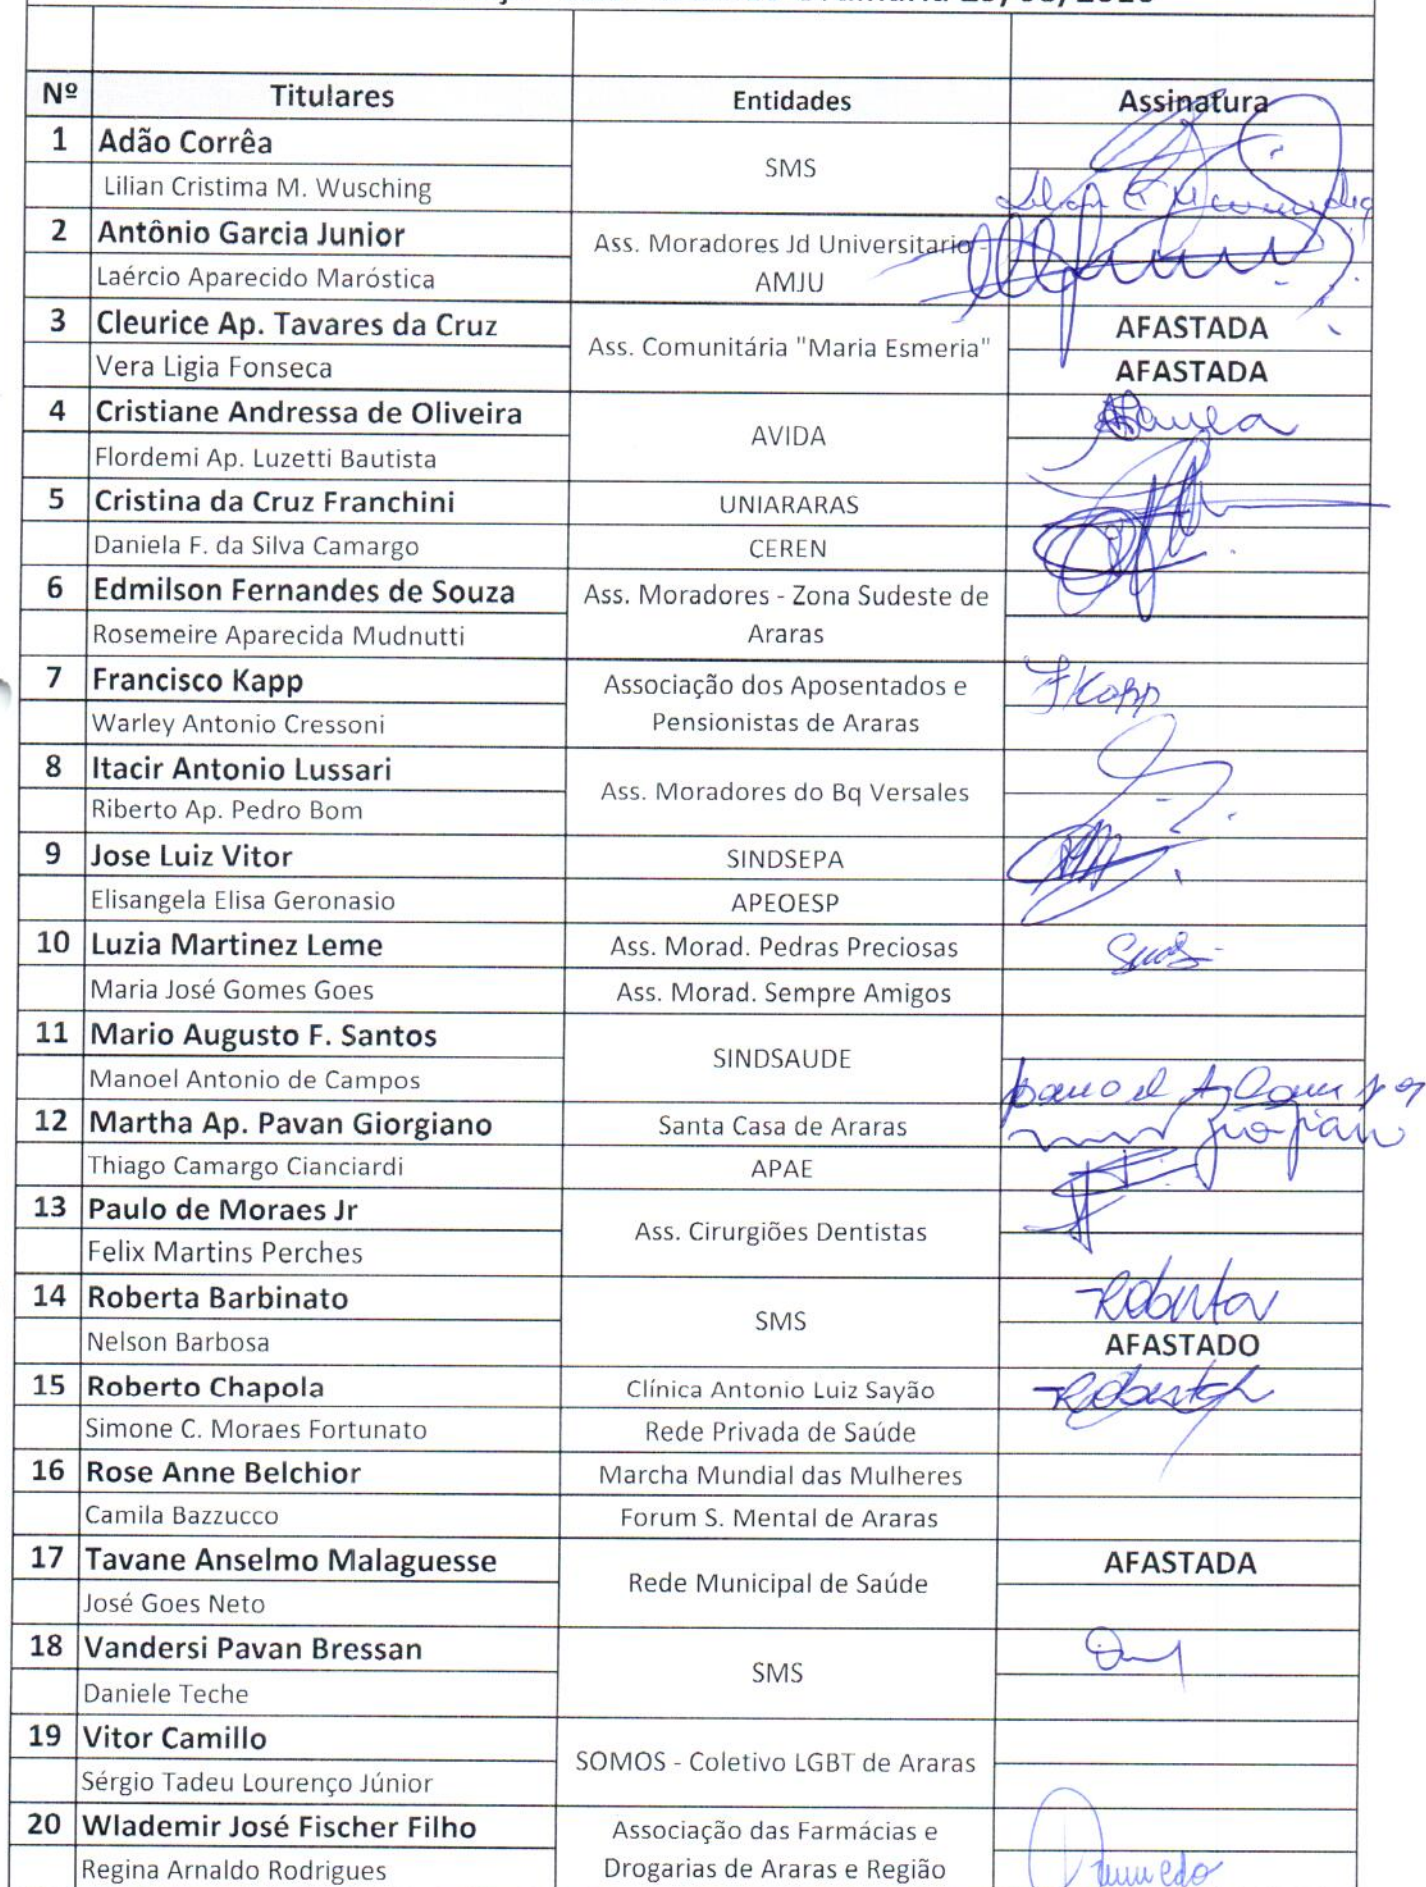 Nº Titulares Entidades Assinatura
1 Adão Corrêa
SMS
Lilian Cristima M. Wusching
2 Antônio Garcia Junior
Ass. Moradores Jd Universitario -
AMJU
Laércio Aparecido Maróstica
3 Cleurice Ap. Tavares da Cruz AFASTADA
Ass. Comunitária "Maria Esmeria"
Vera Ligia Fonseca AFASTADA
4 Cristiane Andressa de Oliveira
AVIDA
Flordemi Ap. Luzetti Bautista
5 Cristina da Cruz Franchini UNIARARAS
Daniela F. da Silva Camargo CEREN
6 Edmilson Fernandes de Souza
Ass. Moradores - Zona Sudeste de
Araras
Rosemeire Aparecida Mudnutti
7 Francisco Kapp FKapp
Associação dos Aposentados e
Pensionistas de Araras
Warley Antonio Cressoni
8 Itacir Antonio Lussari
Ass. Moradores do Bq Versales
Riberto Ap. Pedro Bom
9 Jose Luiz Vitor SINDSEPA
Elisangela Elisa Geronasio APEOESP
10 Luzia Martinez Leme Ass. Morad. Pedras Preciosas
Maria José Gomes Goes Ass. Morad. Sempre Amigos
11 Mario Augusto F. Santos
SINDSAUDE
Manoel Antonio de Campos
12 Martha Ap. Pavan Giorgiano Santa Casa de Araras
Thiago Camargo Cianciardi APAE
13 Paulo de Moraes Jr
Ass. Cirurgiões Dentistas
Felix Martins Perches
14 Roberta Barbinato Roberta
SMS
Nelson Barbosa AFASTADO
15 Roberto Chapola Clínica Antonio Luiz Sayão
Simone C. Moraes Fortunato Rede Privada de Saúde
16 Rose Anne Belchior Marcha Mundial das Mulheres
Camila Bazzucco Forum S. Mental de Araras
17 Tavane Anselmo Malaguesse AFASTADA
Rede Municipal de Saúde
José Goes Neto
18 Vandersi Pavan Bressan
SMS
Daniele Teche
19 Vitor Camillo
SOMOS - Coletivo LGBT de Araras
Sérgio Tadeu Lourenço Júnior
20 Wlademir José Fischer Filho
Associação das Farmácias e
Drogarias de Araras e Região
Regina Arnaldo Rodrigues